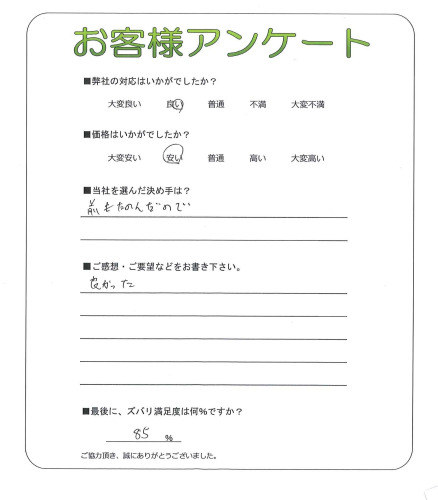 お客様アンケート
■弊社の対応はいかがでしたか?
大変良い 良い 普通 不満 大変不満
■価格はいかがでしたか?
大変安い 安い 普通 高い 大変高い
■当社を選んだ決め手は?
前もたのんだので
■ご感想・ご要望などをお書き下さい。
良かった
■最後に、ズバリ満足度は何%ですか?
85 %
ご協力頂き、誠にありがとうございました。